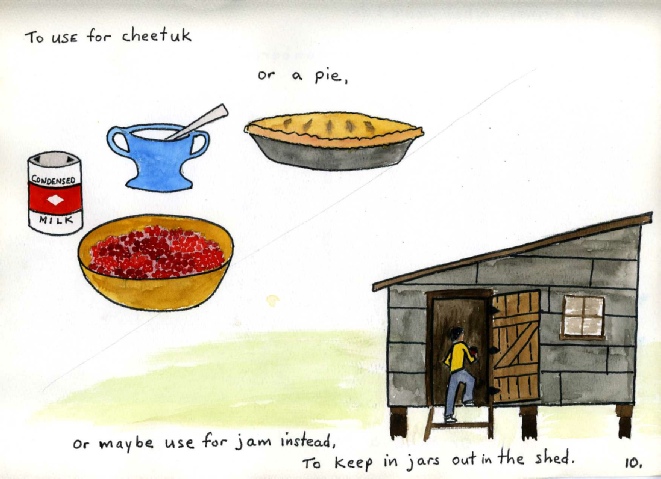 To USE for cheetuk
or a pie,
CONDENSED
MILK
or maybe use for jam instead,
To keep in jars out in the shed.
10.